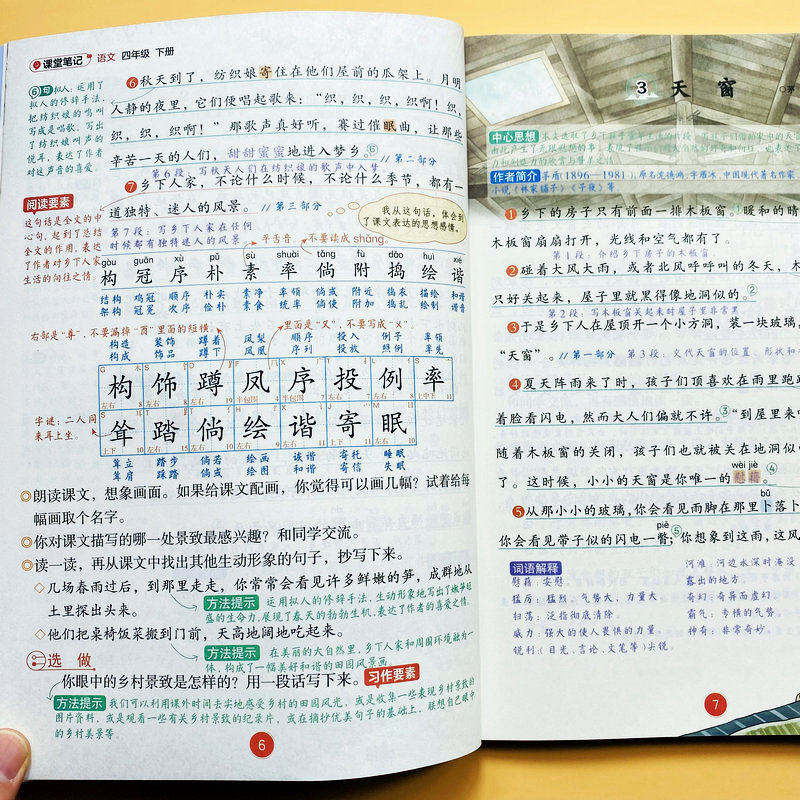 课堂笔记 语文 四年级 下册
⑥句 拟人：运用了
拟人的修辞手法，
把纺织娘的鸣叫
写成是唱歌，写出
了纺织娘叫声的
悦耳，表达了作者
对这声音的喜爱。
⑥秋天到了，纺织娘寄住在他们屋前的瓜架上。月明
人静的夜里，它们便唱起歌来：“织，织，织，织啊！织，
织，织，织啊！”那歌声真好听，赛过催眠曲，让那些
辛苦一天的人们，甜甜蜜蜜地进入梦乡。⑥ //第二部分
第6段：写秋天人们在纺织娘的歌声中入梦
⑦乡下人家，不论什么时候，不论什么季节，都有一
道独特、迷人的风景。 //第三部分
第7段：写乡下人家在任何
时候都有独特迷人的风景
我从这句话，体会到
了课文表达的思想感情。
阅读要素
这句话是全文的中
心句，起到了总结
全文的作用，表达
了作者对乡下人家
生活的向往之情。
平舌音，不要读成shàng。
gòu guān xù pǔ sù shuài tǎng fù dǎo huì xié
构 冠 序 朴 素 率 倘 附 捣 绘 谐
结构 鸡冠 顺序 朴实 素净 率领 倘或 附近 捣衣 描绘 和谐
架构 冠冕 次序 俭朴 素食 统率 倘使 附加 捣乱 绘制 谐音
右部是“尊”，不要漏掉“酉”里面的短横。
里面是“又”，不要写成“㐅”。
构造 装饰 蹲着 凤梨 顺序 投入 例子 率领
构成 饰品 蹲下 凤凰 序列 投放 照例 率先
构 饰 蹲 凤 序 投 例 率
耸 踏 倘 绘 谐 寄 眠
字谜：二人同
来耳上坐。
耸立 踏步 倘若 绘画 诙谐 寄托 睡眠
耸肩 踩踏 倘或 绘图 和谐 寄信 失眠
朗读课文，想象画面。如果给课文配画，你觉得可以画几幅？试着给每
幅画取个名字。
你对课文描写的哪一处景致最感兴趣？和同学交流。
读一读，再从课文中找出其他生动形象的句子，抄写下来。
◇几场春雨过后，到那里走走，你常常会看见许多鲜嫩的笋，成群地从
土里探出头来。
方法提示 运用拟人的修辞手法，生动形象地写出了嫩笋旺
盛的生命力，展现了春天的勃勃生机，表达了作者的喜爱之情。
◇他们把桌椅饭菜搬到门前，天高地阔地吃起来。
方法提示 在美丽的大自然里，乡下人家和周围环境融为一
体，构成了一幅美好和谐的田园风景画。
选做
你眼中的乡村景致是怎样的？用一段话写下来。 习作要素
方法提示 我们可以利用课外时间去实地感受乡村的田园风光，或是收集一些表现乡村景致的
图片资料，或是观看一些有关乡村景致的纪录片，或在摘抄优美句子的基础上，联想自己眼中
的乡村美景等。
6
3 天窗
中心思想
作者简介 茅盾(1896—1981)，原名沈德鸿，字雁冰，中国现代著名作家
小说《林家铺子》《子夜》等。
①乡下的房子只有前面一排木板窗。①暖和的晴
木板窗扇扇打开，光线和空气都有了。
第1段：介绍乡下房子的木板窗
②碰着大风大雨，或者北风呼呼叫的冬天，木
只好关起来，屋子里就黑得像地洞似的。②
第2段：写木板窗关起来时屋子里非常黑
③于是乡下人在屋顶开一个小方洞，装一块玻璃，
“天窗”。 //第一部分 第3段：交代天窗的位置、形状和
④夏天阵雨来了时，孩子们顶喜欢在雨里跑跳
着脸看闪电，然而大人们偏就不许。③“到屋里来
随着木板窗的关闭，孩子们也就被关在地洞似的
wèi jiè
了。这时候，小小的天窗是你唯一的慰藉。④
bǔ
⑤从那小小的玻璃，你会看见雨脚在那里卜落卜
piē
你会看见带子似的闪电一瞥；⑤你想象到这雨，这风
词语解释
慰藉：安慰
猛厉：猛烈。气势大，力量大
扫荡：泛指彻底清除。
威力：强大的使人畏惧的力量。
锐利：(目光、言论、文笔等)尖锐
河滩：河边水深时淹没
露出的地方。
奇幻：奇异而虚幻
霸气：专横的气势
神奇：非常奇妙
7